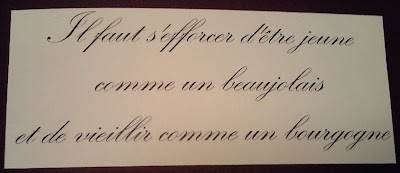 Il faut s'efforcer d'être jeune
comme un beaujolais
et de vieillir comme un bourgogne